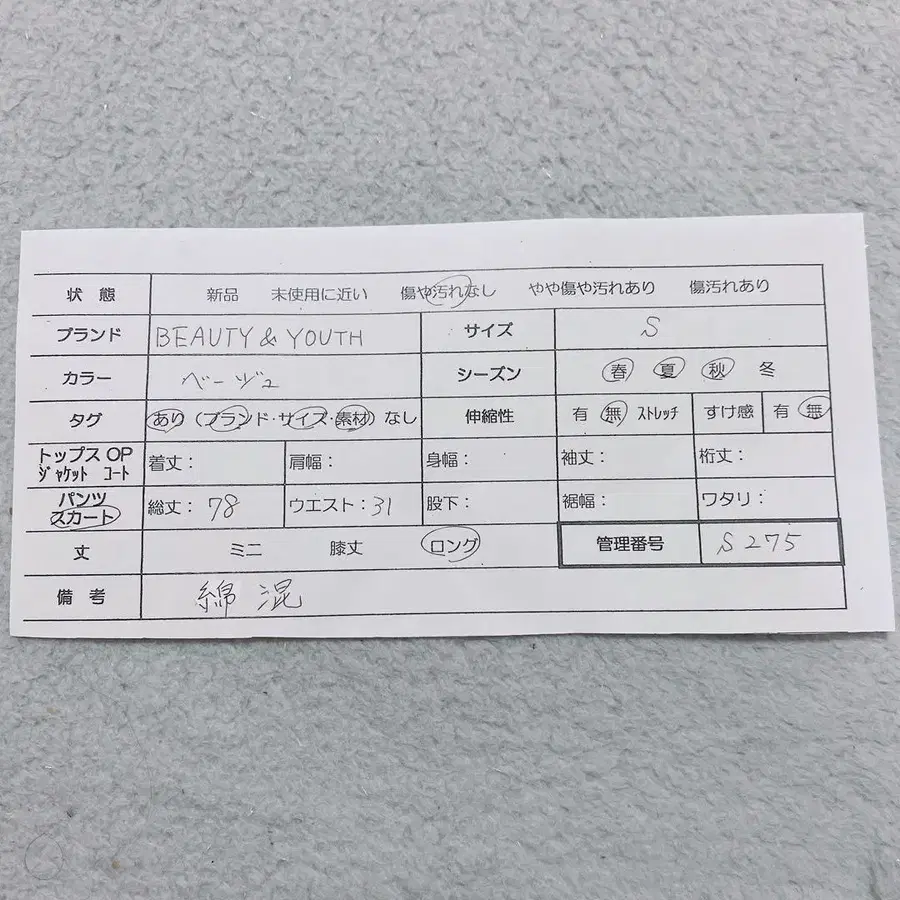 状態 新品 未使用に近い 傷や汚れなし やや傷や汚れあり 傷汚れあり
ブランド BEAUTY & YOUTH サイズ S
カラー ベージュ シーズン 春 夏 秋 冬
タグ あり(ブランド・サイズ・素材)なし 伸縮性 有 無 ストレッチ すけ感 有 無
トップス OP
ジャケット コート 着丈: 肩幅: 身幅: 袖丈: 裄丈:
パンツ
スカート 総丈: 78 ウエスト: 31 股下: 裾幅: ワタリ:
丈 ミニ 膝丈 ロング 管理番号 S275
備考 綿混